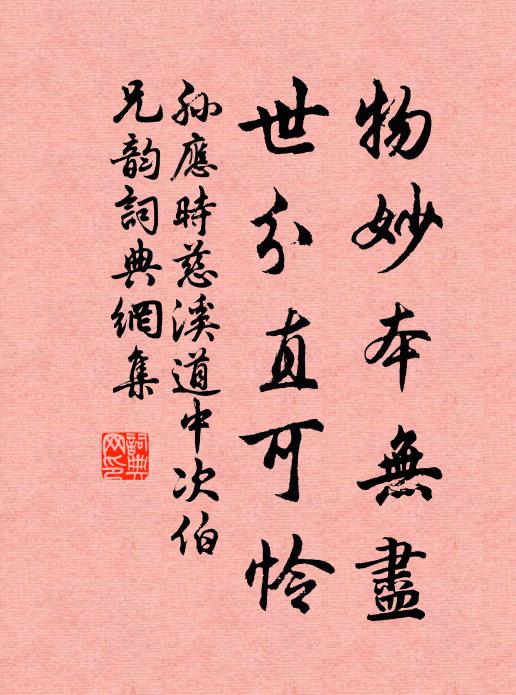 物妙本無盡
世分直可怜
孫應時慈溪道中次伯
兄韵詞典網集
詞典网印